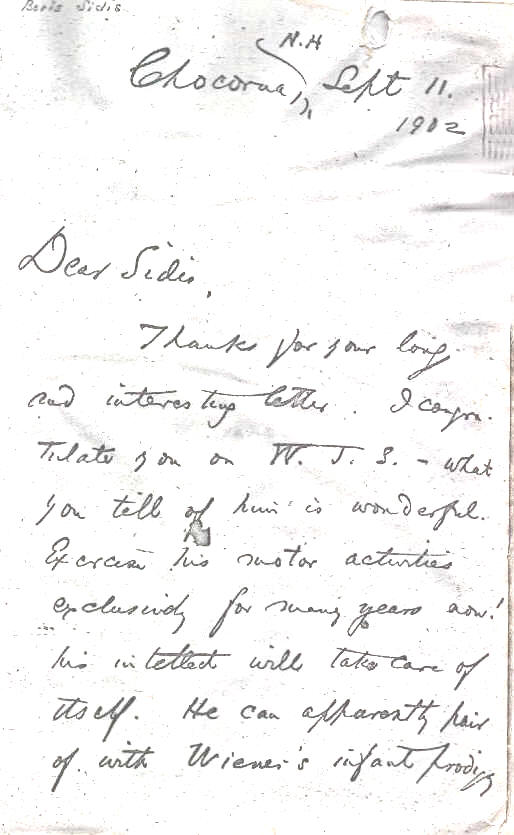 Boris Sidis
N.H
Chocorua, Sept 11.
1902
Dear Sidis,
Thanks for your long
and interesting letter. I congra-
tulate you on W. J. S. - what
you tell of him is wonderful.
Exercise his motor activities
exclusively for many years now!
his intellect will take care of
itself. He can apparently pair
of with Wiener's infant prodigy